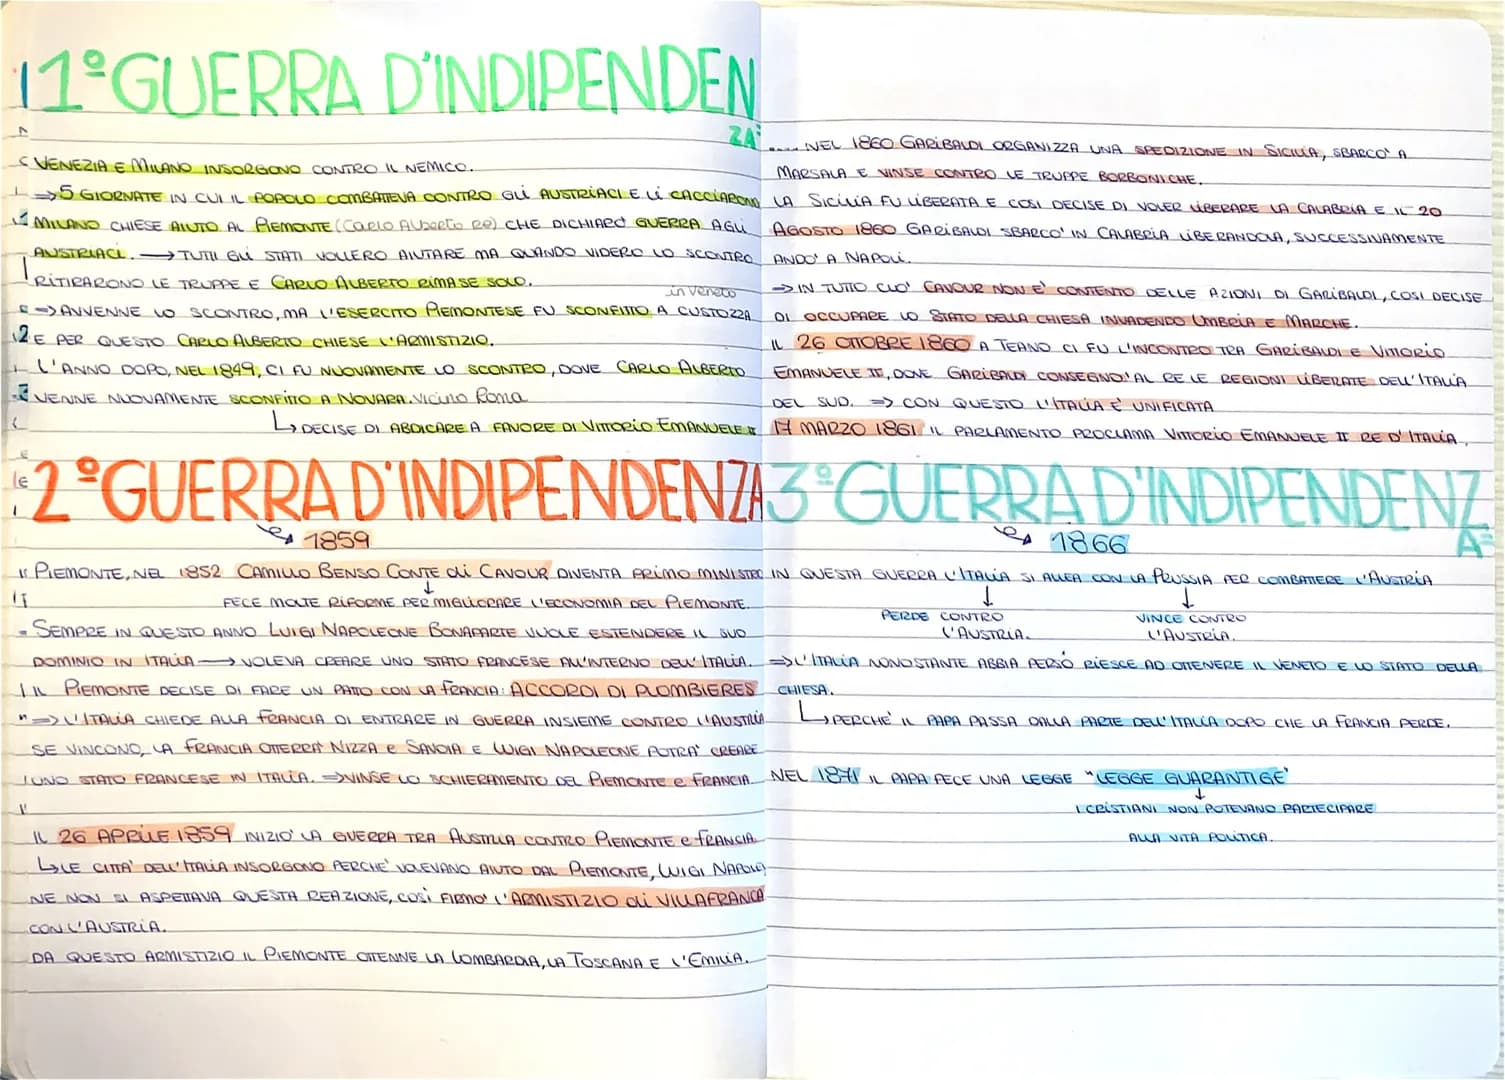 1º GUERRA D'INDIPENDEN
ZA
VENEZIA E MILANO INSORGONO CONTRO IL NEMICO.
=> 5 GIORNATE IN CUI IL POPOLO COMBATTEVA CONTRO GLI AUSTRIACI E LI CACCIARONO
MILANO CHIESE AIUTO AL PIEMONTE (CARLO ALBERTO RE) CHE DICHIARÒ GUERRA AGLI
AUSTRIACI. → TUTTI GLI STATI VOLLERO AIUTARE MA QUANDO VIDERO LO SCONTRO
RITIRARONO LE TRUPPE E CARLO ALBERTO RIMASE SOLO.
in veneto
=> AVVENNE LO SCONTRO, MA L'ESERCITO PIEMONTESE FU SCONFITTO A CUSTOZZA
E PER QUESTO CARLO ALBERTO CHIESE L'ARMISTIZIO.
L'ANNO DOPO, NEL 1849, CI FU NUOVAMENTE LO SCONTRO, DOVE CARLO ALBERTO
VENNE NUOVAMENTE SCONFITTO A NOVARA. VICINO ROMA
↳ DECISE DI ABDICARE A FAVORE DI VITTORIO EMANUELE II
2º GUERRA D'INDIPENDENZA
1859
PIEMONTE, NEL 1852 CAMILLO BENSO CONTE di CAVOUR DIVENTA PRIMO MINISTRO
↓
FECE MOLTE RIFORME PER MIGLIORARE L'ECONOMIA DEL PIEMONTE.
SEMPRE IN QUESTO ANNO LUIGI NAPOLEONE BONAPARTE VUOLE ESTENDERE IL SUO
DOMINIO IN ITALIA → VOLEVA CREARE UNO STATO FRANCESE ALL'INTERNO DELL'ITALIA.
IL PIEMONTE DECISE DI FARE UN PATTO CON LA FRANCIA: ACCORDI DI PLOMBIERES
=> L'ITALIA CHIEDE ALLA FRANCIA DI ENTRARE IN GUERRA INSIEME CONTRO L'AUSTRIA
SE VINCONO, LA FRANCIA OTTERRA' NIZZA e SAVOIA E LUIGI NAPOLEONE POTRA' CREARE
UNO STATO FRANCESE IN ITALIA. => VINSE LO SCHIERAMENTO DEL PIEMONTE e FRANCIA
IL 26 APRILE 1859 INIZIO' LA GUERRA TRA AUSTRIA CONTRO PIEMONTE e FRANCIA
↳ LE CITTA' DELL'ITALIA INSORGONO PERCHE' VOLEVANO AIUTO DAL PIEMONTE, LUIGI NAPOLEO
NE NON SI ASPETTAVA QUESTA REAZIONE, COSÌ FIRMO' L'ARMISTIZIO di VILLAFRANCA
CON L'AUSTRIA.
DA QUESTO ARMISTIZIO IL PIEMONTE OTTENNE LA LOMBARDIA, LA TOSCANA E L'EMILIA.
.... NEL 1860 GARIBALDI ORGANIZZA UNA SPEDIZIONE IN SICILIA, SBARCO' A
MARSALA E VINSE CONTRO LE TRUPPE BORBONICHE.
LA SICILIA FU LIBERATA E COSI DECISE DI VOLER LIBERARE LA CALABRIA E IL 20
AGOSTO 1860 GARIBALDI SBARCO' IN CALABRIA LIBERANDOLA, SUCCESSIVAMENTE
ANDO' A NAPOLI.
=> IN TUTTO CIO' CAVOUR NON E' CONTENTO DELLE AZIONI DI GARIBALDI, COSI DECISE
DI OCCUPARE LO STATO DELLA CHIESA INVADENDO UMBRIA E MARCHE.
IL 26 OTTOBRE 1860 A TEANO CI FU L'INCONTRO TRA GARIBALDI E VITTORIO
EMANUELE II, DOVE GARIBALDI CONSEGNO' AL RE LE REGIONI LIBERATE DELL'ITALIA
DEL SUD. => CON QUESTO L'ITALIA E' UNIFICATA
17 MARZO 1861 IL PARLAMENTO PROCLAMA VITTORIO EMANUELE II RE D'ITALIA.
3º GUERRA D'INDIPENDENZ
A
1866
IN QUESTA GUERRA L'ITALIA SI ALLEA CON LA PRUSSIA PER COMBATTERE L'AUSTRIA
↓ ↓
PERDE CONTRO VINCE CONTRO
L'AUSTRIA. L'AUSTRIA.
=> L'ITALIA NONOSTANTE ABBIA PERSO RIESCE AD OTTENERE IL VENETO E LO STATO DELLA
CHIESA.
↳ PERCHE' IL PAPA PASSA DALLA PARTE DELL'ITALIA DOPO CHE LA FRANCIA PERDE.
NEL 1871 IL PAPA FECE UNA LEGGE "LEGGE GUARANTIGE"
↓
I CRISTIANI NON POTEVANO PARTECIPARE
ALLA VITA POLITICA.